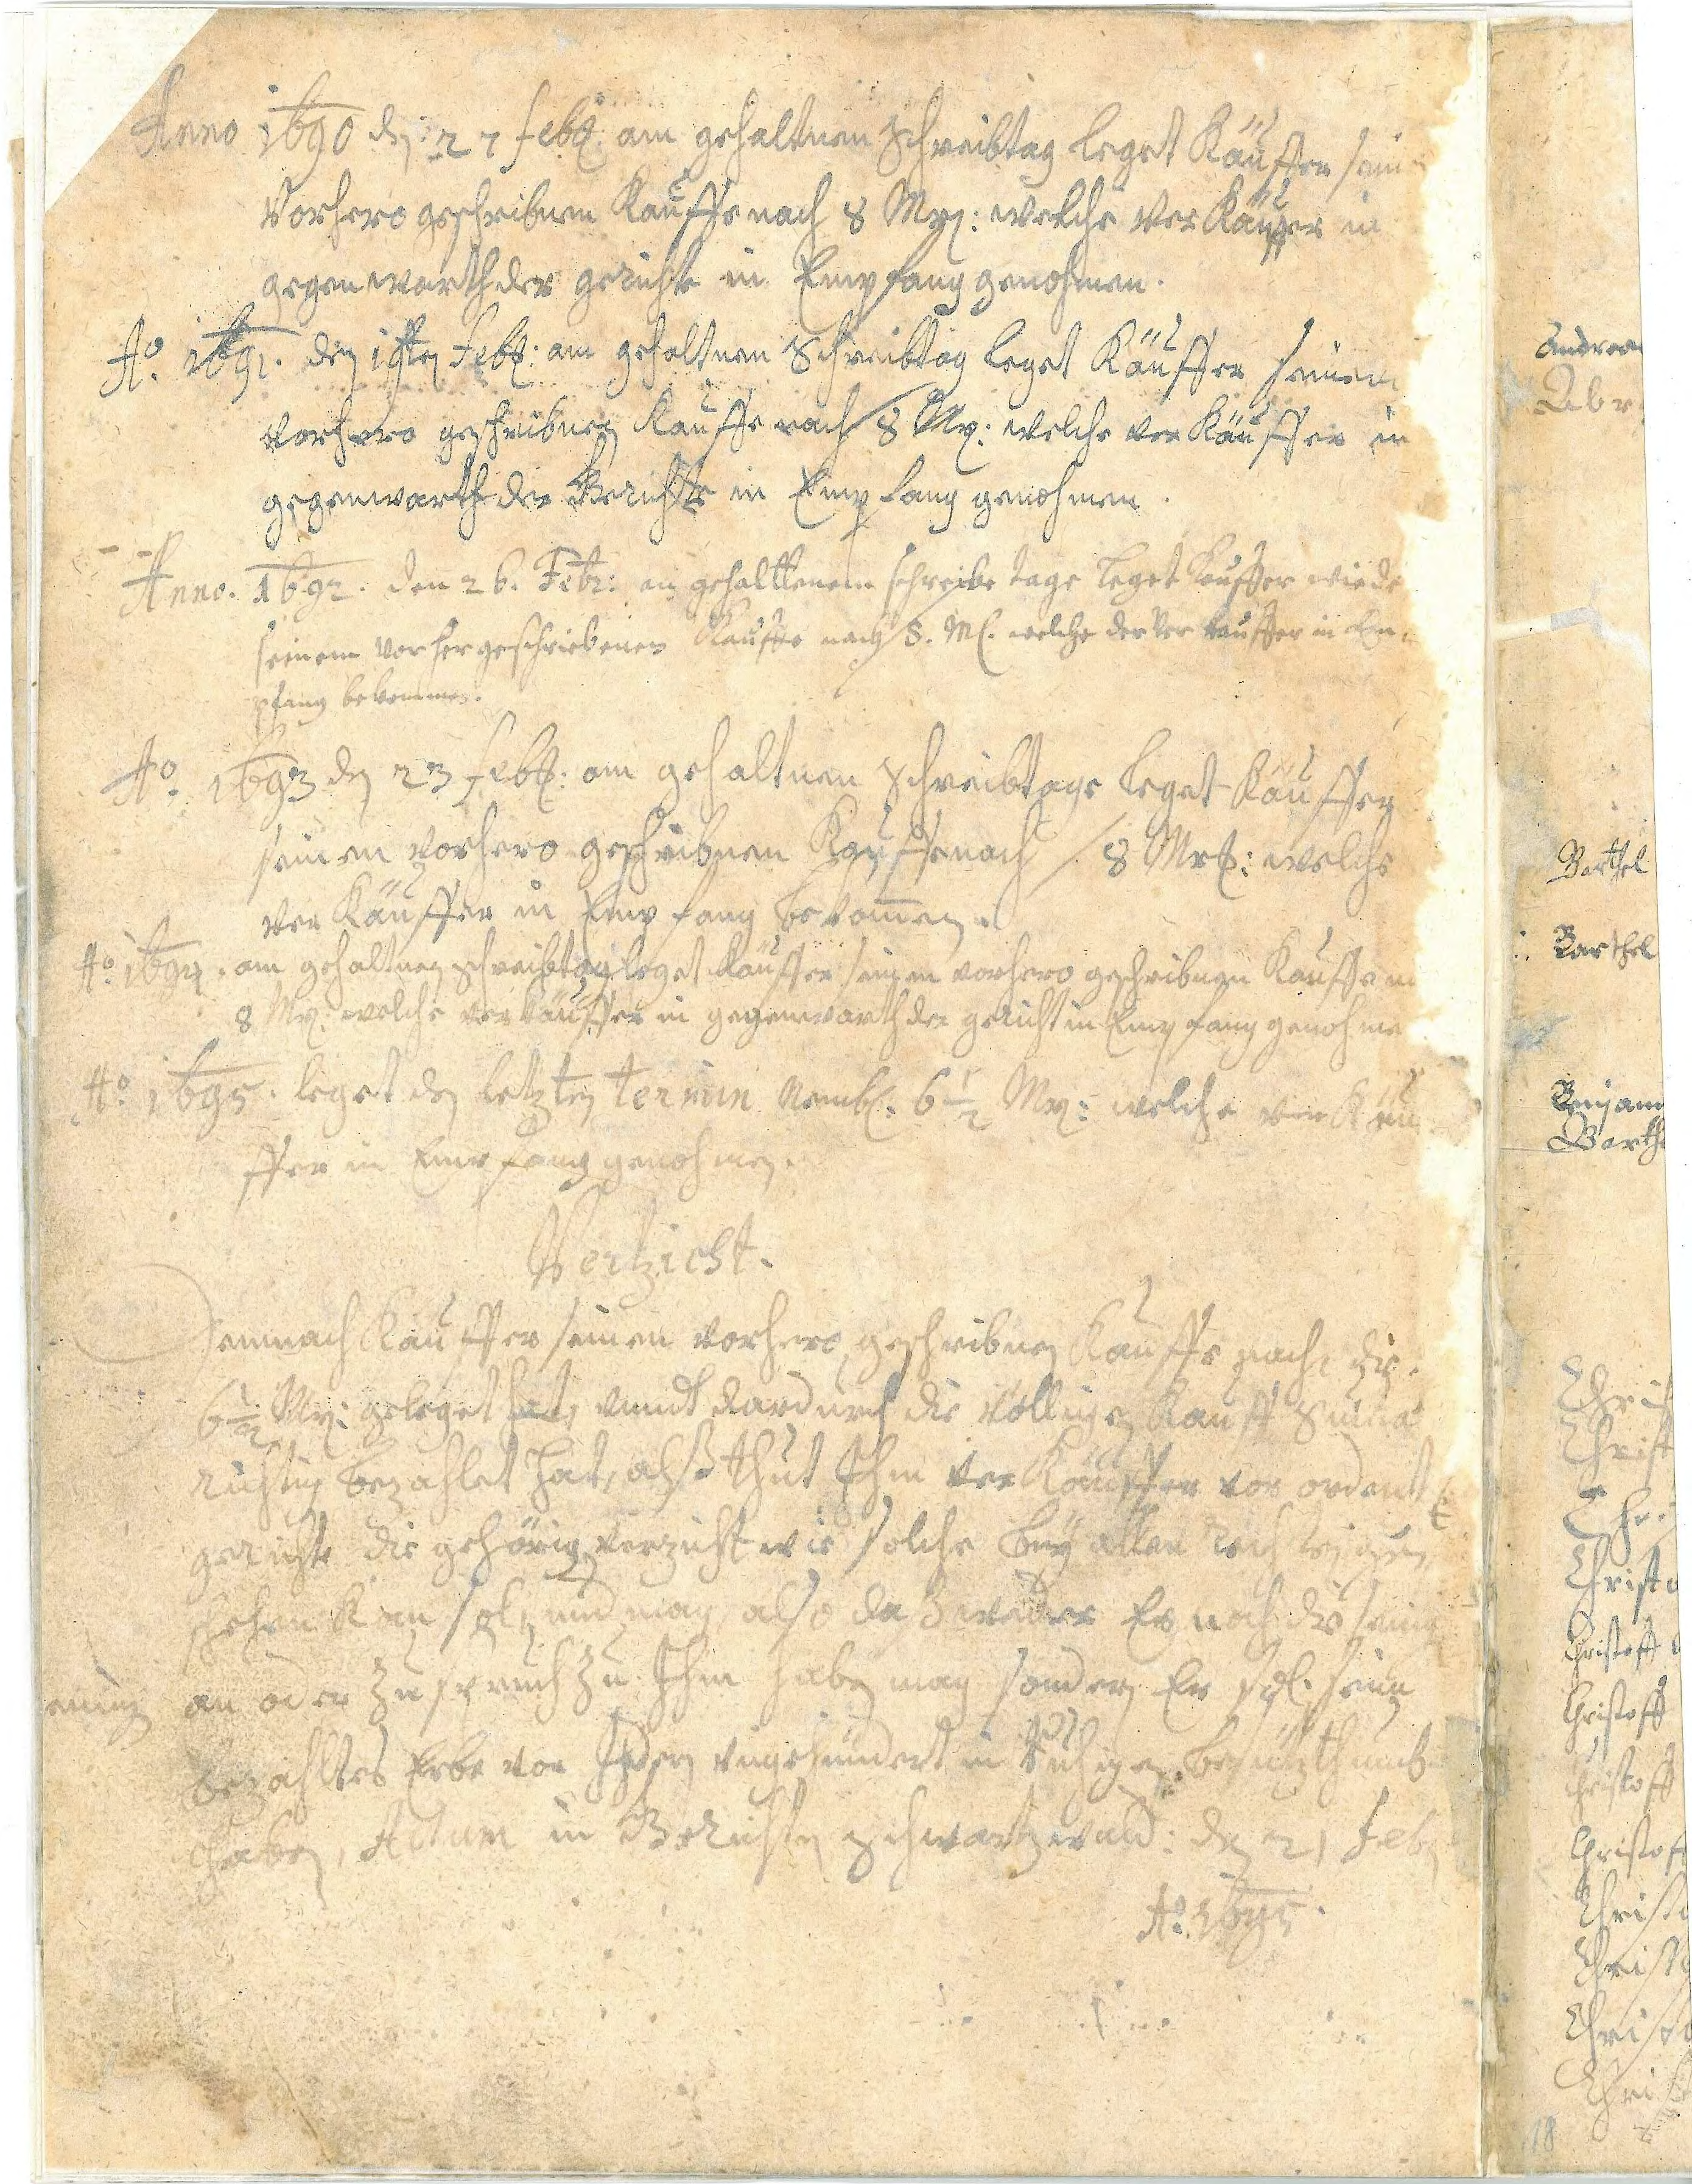 Anno 1690 den 27 Febr: am gehaltnen Schreibtag leget Käuffer sein
Vorhero geschribnen Kauffe nach 8 Mrg: welche ver Käuffer in
gegenwarth der gerichte in Empfang genohmen.
Ao. 1691. den 19ten Febr: am gehaltnen Schreibtag leget Käuffer seinem
vorhero geschribnen Kauffe nach 8 Mrg: welche ver Käuffer in
gegenwarth der Gerichte in Empfang genohmen.
Anno. 1692. den 26. Febr: an gehalttenem schreibe tage leget Keuffer wiede
seinem vorhergeschriebenen Kauffe nach 8. M. welche der Ver Keuffer in Em
pfang bekommen.
Ao. 1693 den 23 Febr: am gehaltnen Schreibtage leget Käuffer
seinen vorhero geschribnen Kauffe nach 8 Mrg: welche
ver Käuffer in Empfang bekommen.
Ao. 1694. am gehaltnen schreibtag leget Käuffer seinen vorhero geschribnen Kauffe n
8 Mrg: welche ver käuffer in gegenwarth der gericht in Empfang genohme
Ao. 1695. leget den letzten termin Nembl. 6 1/2 Mrg: welche ver Käu
ffer in Empfang genohmen.
Vertzicht.
Demnach Käuffer seinen vorhero geschribnen Kauffe nach, die
6 1/2 Mrg: geleget hat, vundt dardurch die völligen Kauff Summa
richtig bezahlet hat, alß thut Ihm ver Käuffer vor ordentl
gerichte die gehörige verzicht wie solche bey allen
schehen kan soll und mag, also daß weder Er noch die seinig
einig an oder Zuspruch Zu Ihm haben mag sondern Er sol sein
bezahltes Erbe vor Ihnen vngehindert in Ruhigen
haben, Actum in Gerichten Schwartzwald: den 21 Febr
Ao. 1695.
Andreas
Abr
Barthel
Barthel
Benjam
Barth
Chris
Christ
Chri
Christ
Christoff
Christoff
Christoff
Christof
Christ
Christ
Christ
Chri
18